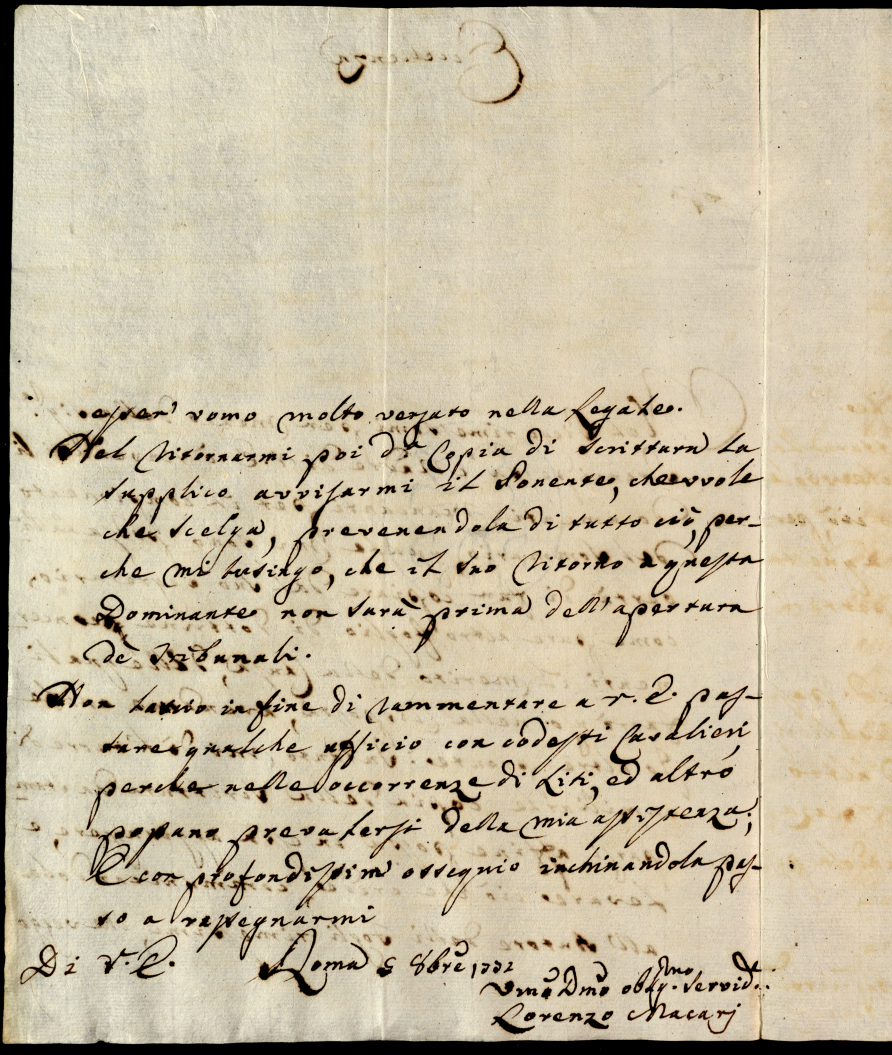 esser' vomo molto versato nella Legale.
Nel ritornarmi poi d.ª Copia di scrittura la
supplico avvisarmi il Ponente, che vuole
che scelga, prevenendola di tutto ciò, per-
che mi lusingo, che il suo ritorno a questa
Dominante non sarà prima dell'apertura
dè Tribunali.
Non lascio in fine di rammentare a V. E. pas-
sare qualche officio con codesti Cavalieri,
perche nelle occorrenze di Liti, ed altro
possano prevalersi della mia assistenza;
E con profondissim' ossequio inchinandola pas-
so a rassegnarmi
Di V. E. Roma 5 8bre 1732
Vmo Dmo obbg.mo Servid.
Lorenzo Macarj